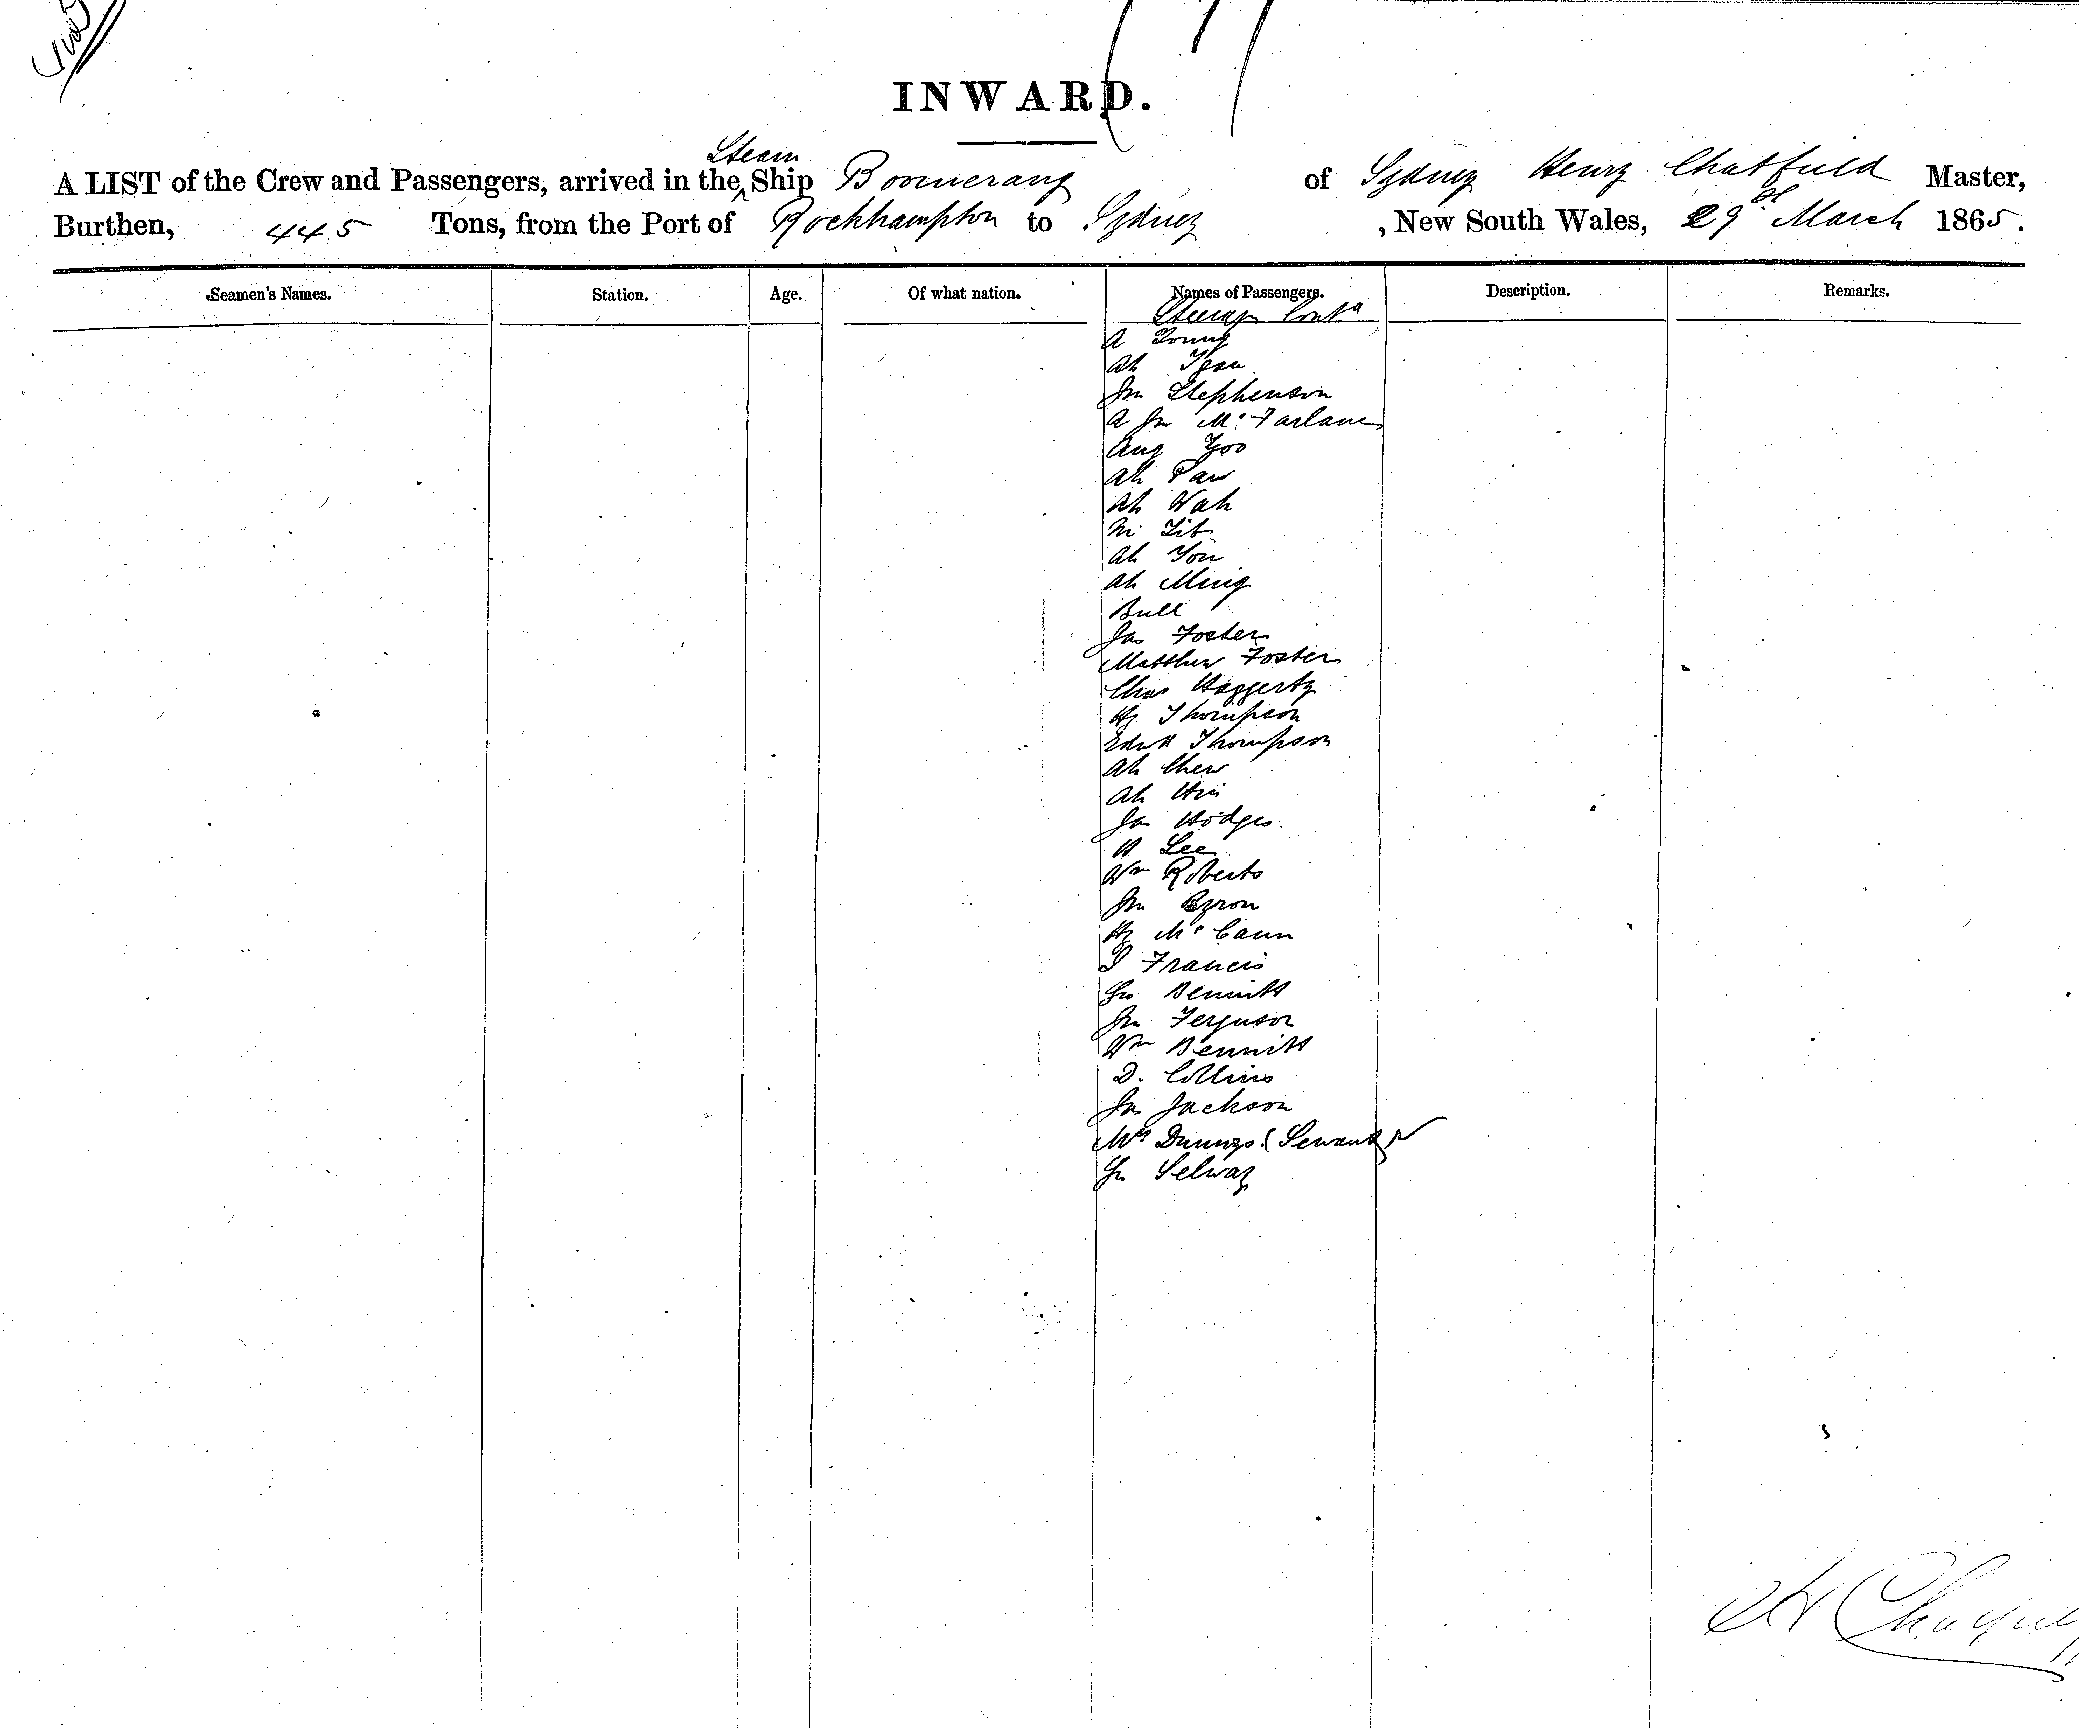 INWARD.
Steam
A LIST of the Crew and Passengers, arrived in the Ship Boomerang of Sydney Henry Chatfield Master,
Burthen, 445 Tons, from the Port of Rockhampton to Sydney , New South Wales, 29th March 1865.
Seamen's Names. Station. Age. Of what nation. Names of Passengers. Description. Remarks.
Steerage Contd
A Young
Ah
Jn Stephenson
A Jn McFarlane
Ang Yoo
Ah Paw
Ah Wah
Ah You
Ah Ming
Bull
Jas Foster
Matthew Foster
Chas Haggerty
Hy Thompson
Edwd Thompson
Ah Chew
Ah Hii
Jas Hodges.
H Lee
Wm Roberts
Jn Byron
Hy McCann
Francis
Geo Bennitt
Jn Ferguson
Wm Bennitt
D. Collins
Jas Jackson
Mrs Servant
Selway
H Chatfield